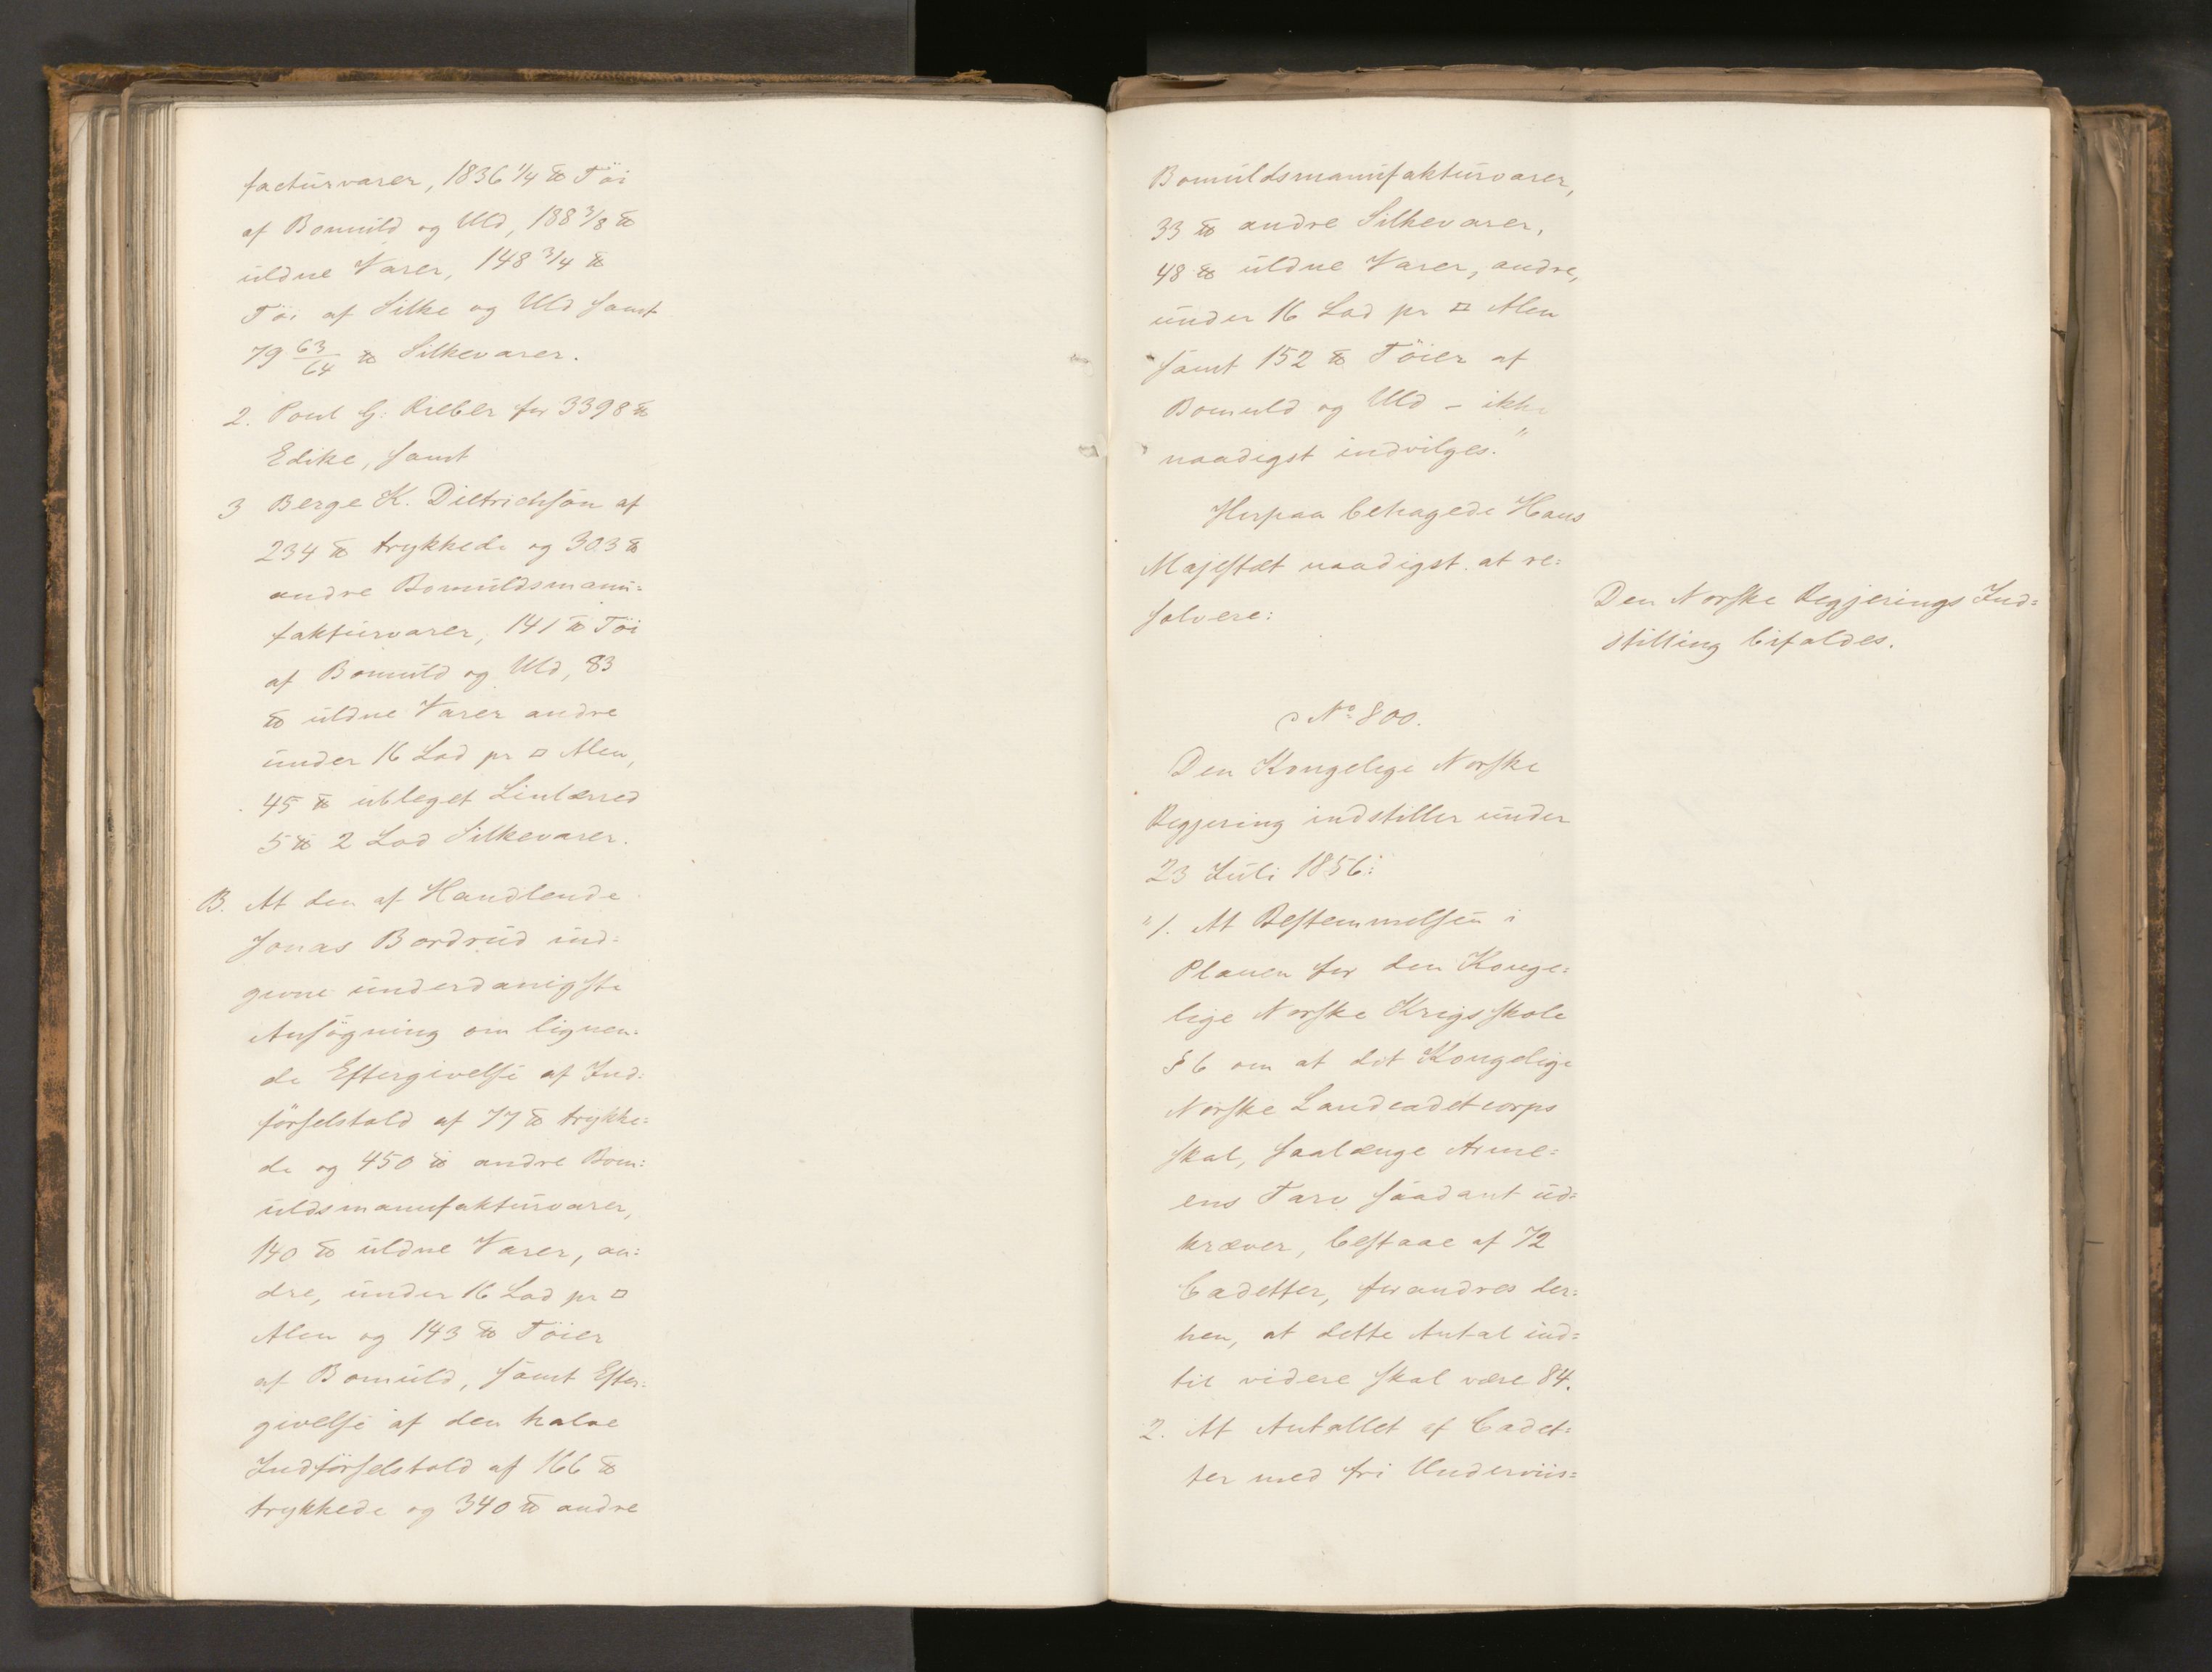 facturvarer, 1836 1/4 ℔ Töi
af Bomuld og Uld, 188 3/8 ℔
uldne Varer, 148 3/4 ℔
Töi af Silke og Uld samt
79 63/64 ℔ Silkevarer.
2. Poul G: Rieber for 3398 ℔
Edike, samt
3 Berge K. Dietrichson af
234 ℔ trykkede og 303 ℔
andre Bomuldsmanu=
fakturvarer, 141 ℔ Töi
af Bomuld og Uld, 83
℔ uldne Varer andre
under 16 Lod pr □ Alen,
45 ℔ ubleget Linlærred
5 ℔ 2 Lod Silkevarer.
B. At den af Handlende
Jonas Bordrud ind=
givne underdanigste
Ansögning om lignen=
de Eftergivelse af Ind=
förselstold af 77 ℔ trykke=
de og 450 ℔ andre Bom=
uldsmanufakturvarer,
140 ℔ uldne Varer, an=
dre, under 16 Lod pr □
Alen og 143 ℔ Töier
af Bomuld, samt Efter=
givelse af den halve
Indförselstold af 166 ℔
trykkede og 340 ℔ andre
Bomuldsmanufakturvarer,
33 ℔ andre Silkevarer,
48 ℔ uldne Varer, andre,
under 16 Lod pr □ Alen
samt 152 ℔ Töier af
Bomuld og Uld – ikke
naadigst indvilges."
Herpaa behagede Hans
Majestæt naadigst at re=
solvere:
Den Norske Regjerings Ind=
stilling bifaldes.
No 800.
Den Kongelige Norske
Regjering indstiller under
23 Juli 1856:
"1. At Bestemmelsen i
Planen for den Konge=
lige Norske Krigsskole
§ 6 om at det Kongelige
Norske Landcadetcorps
skal, saalænge Arme=
ens Tarv saadant ud=
kræver, bestaae af 72
Cadetter, forandres der=
hen, at dette Antal ind=
til videre skal være 84.
2. At Antallet af Cadet=
ter med fri Underviis=